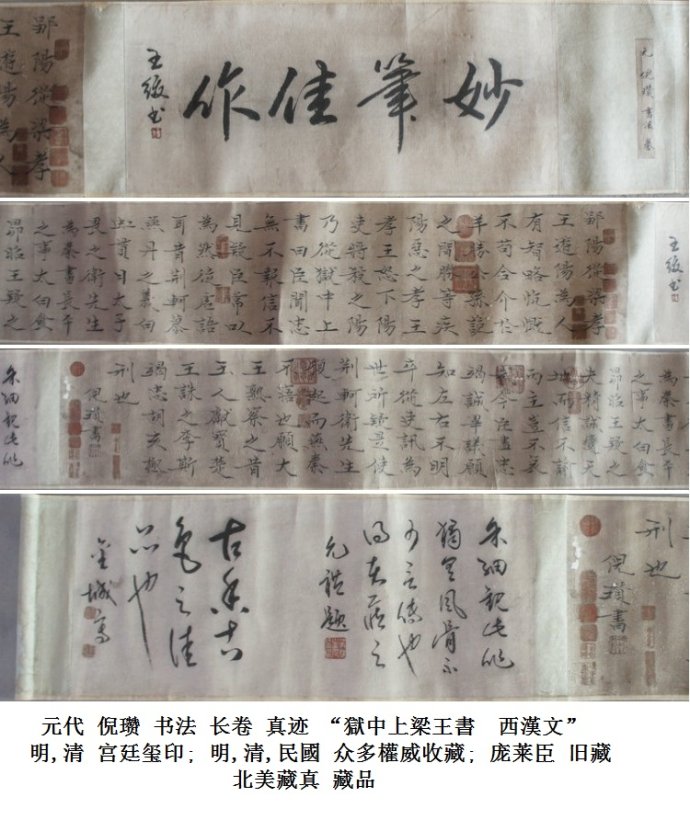 元 倪瓒 書法 卷
妙筆佳作
王緩书
鄒陽從梁孝
王遊陽為人
王緩书
鄒陽從梁孝
王遊陽為人
有智略忼慨
不苟合介於
羊勝公孫詭
之間勝等疾
陽惡之孝王
孝王怒下陽
吏將殺之陽
乃從獄中上
書曰臣聞忠
無不報信不
見疑臣常以
為然徒虛語
耳昔荊軻慕
燕丹之義白
虹貫日太子
畏之衛先生
為秦畫長平
之事太白食
昴昭王疑之
為秦畫長平
之事太白食
昴昭王疑之
夫精誠變天
地而信不諭
兩主豈不哀
哉今臣盡忠
竭誠畢議願
知左右不明
卒從吏訊為
世所疑是使
荊軻衛先生
復起而燕秦
不寤也願大
王熟察之昔
玉人獻寶楚
王誅之李斯
竭忠胡亥極
刑也
倪瓚書
細觀此
刑也
倪瓚書
細觀此
獨具風骨不
可言傳也
允禮題
古香古
色之佳
品也
金城寫
元代 倪瓒 书法 长卷 真迹 “獄中上梁王書 西漢文”
明,清 宫廷玺印; 明,清,民國 众多權威收藏; 庞莱臣 旧藏
北美藏真 藏品